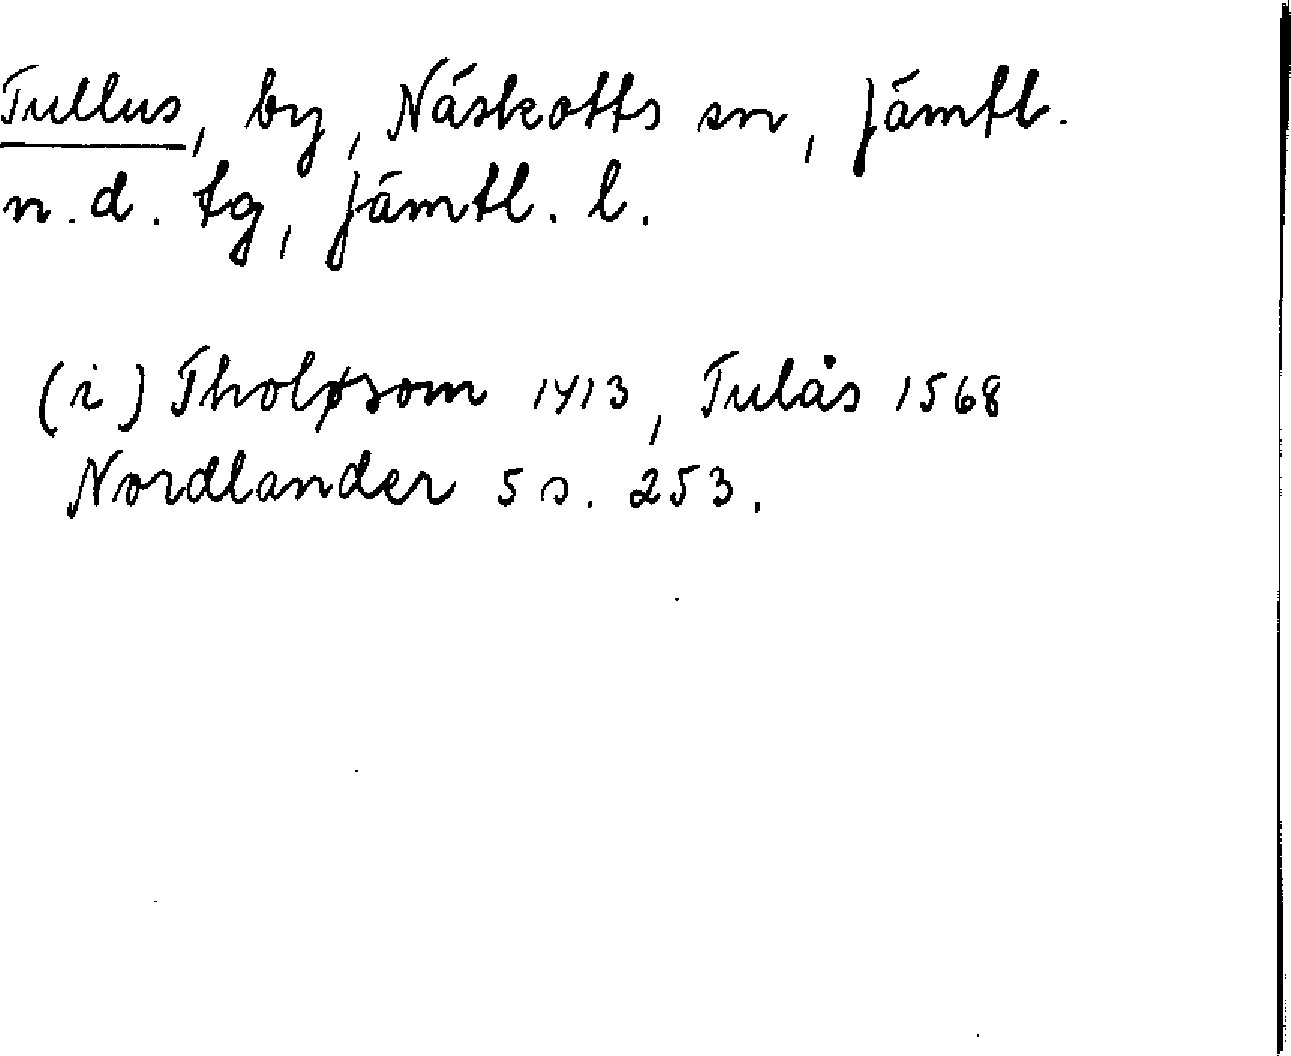 Tullus, by, Näskotts sn, Jämtl.
n.d. tg, Jämtl. l.
(i) Tholøsom 1413, Tulås 1568
Nordlander 5 s. 253.